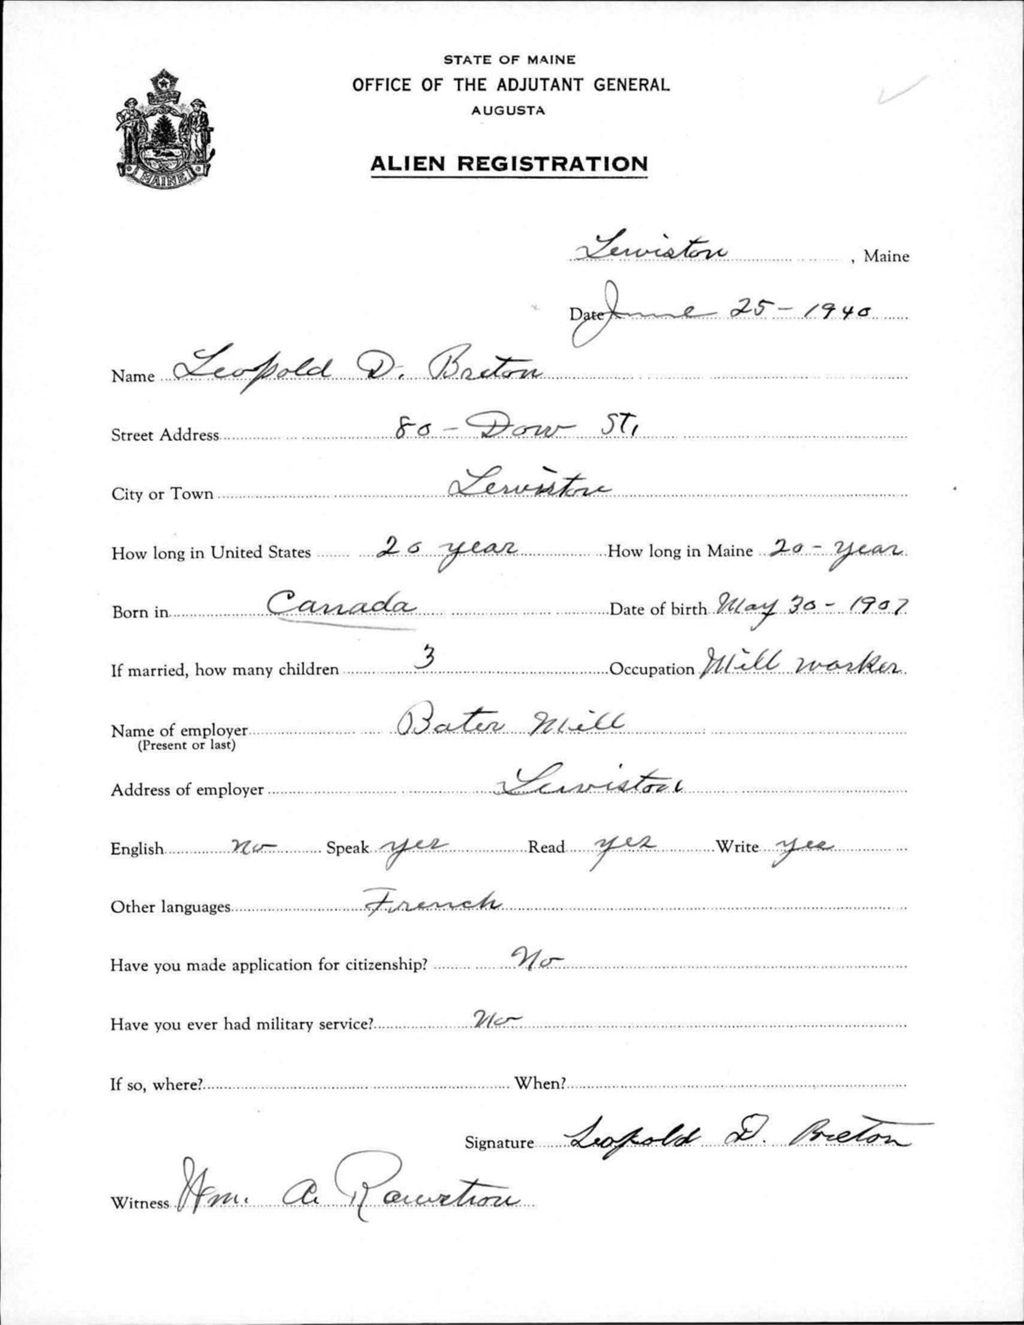 STATE OF MAINE
OFFICE OF THE ADJUTANT GENERAL
AUGUSTA
ALIEN REGISTRATION
MAINE
Lewiston, Maine
Date June 25 - 1940
Name Leopold D. Breton
Street Address 80 - Dow St.
City or Town Lewiston
How long in United States 20 year How long in Maine 20 - year
Born in Canada Date of birth May 30 - 1907
If married, how many children 3 Occupation Mill worker
Name of employer Bates Mill
(Present or last)
Address of employer Lewiston
English No Speak yes Read yes Write yes
Other languages French
Have you made application for citizenship? No
Have you ever had military service? No
If so, where? When?
Signature Leopold D. Breton
Witness Wm. A.